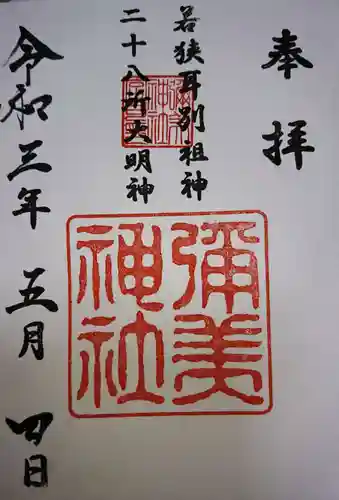 奉拝
若狭耳別祖神
二十八所大明神
彌美
神社
令和三年五月四日